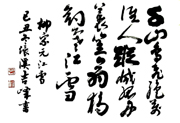 千山鳥飛絕萬
徑人蹤滅孤舟
蓑笠翁獨
釣寒江雪
柳宗元江雪
己丑冬
書